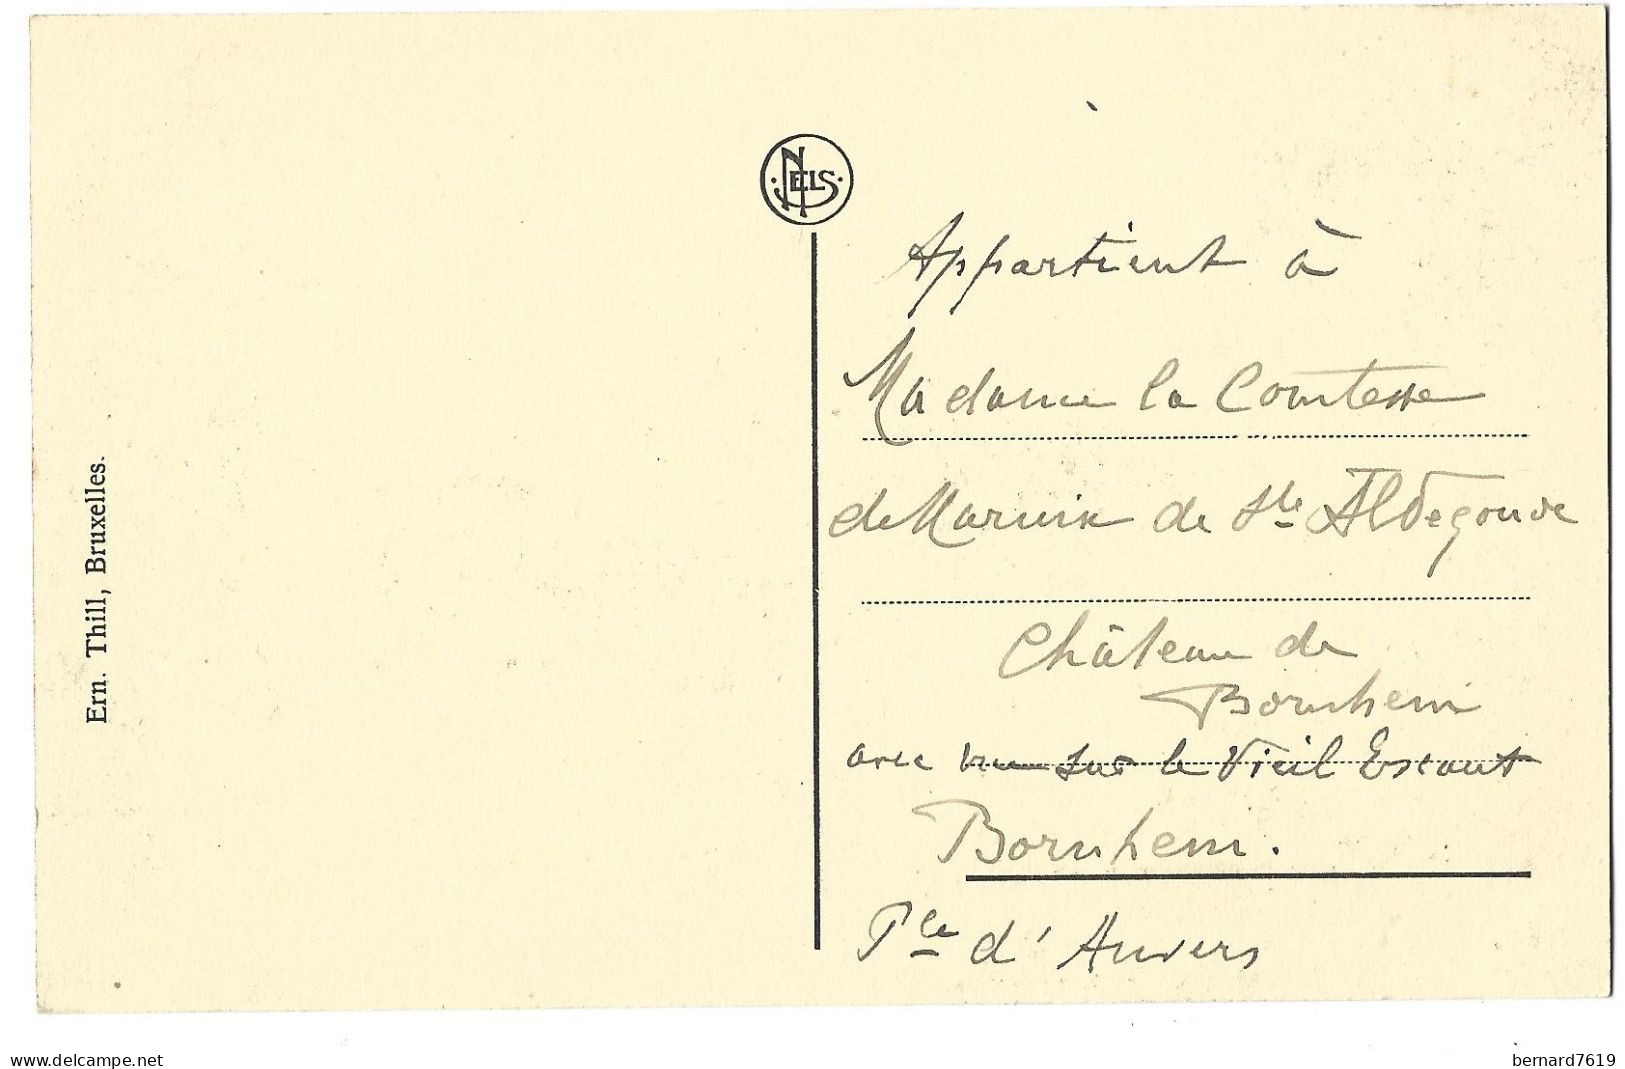 Ern. Thill, Bruxelles.
NELS
Appartient à
Madame la Comtesse
de Marnix de Ste Aldegonde
Château de
Bornhem
avec vue sur le Vieil Escaut
Bornhem.
Pce d'Anvers
www.delcampe.net
bernard7619